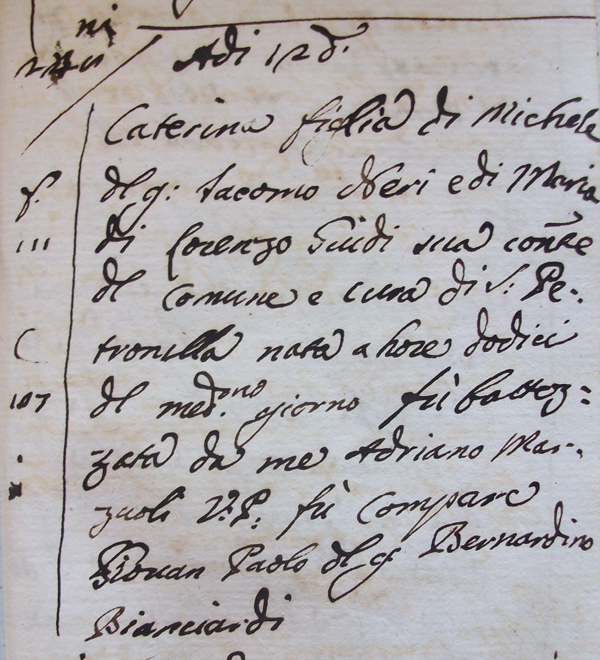 ni
Adi 12 d.º
Caterina figlia di Michele
f. dl q: Iacomo Neri e di Maria
111 di Lorenzo Guidi sua conte
dl comune e cura di S: Pe-
C tronilla nata a hore dodici
107 dl med.mo giorno fù battez=
zata da me Adriano Mar-
zuoli V: P: fù compare
Giovan Paolo dl q: Bernardino
Bianciardi